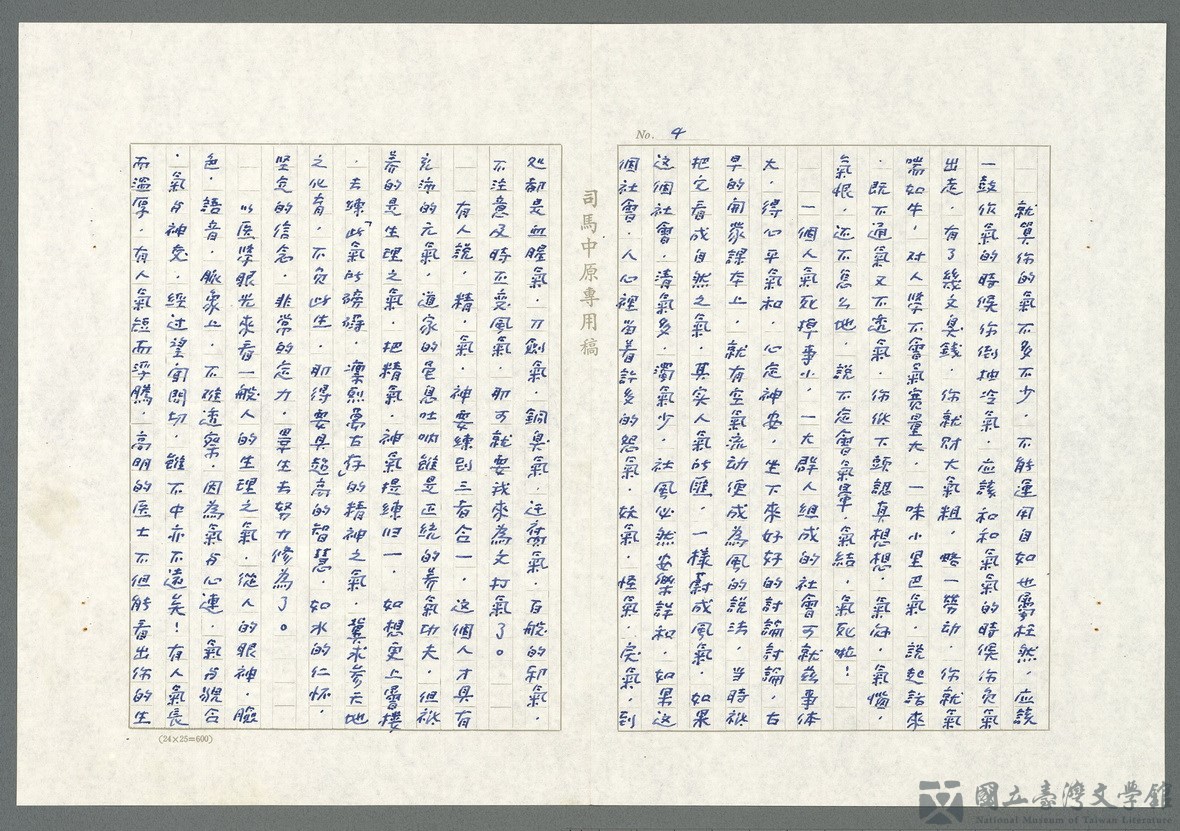 No. 4
就算你的氣不多不少，不能運用自如也屬枉然，應該
一鼓作氣的時候你倒抽冷氣，应該和和氣氣的時候你負氣
出走，有了幾文臭錢，你就財大氣粗，略一勞动，你就氣
喘如牛，对人学不會氣寬量大，一味小里巴氣，說起話來
，既不通氣又不透氣，你低下頭認真想想，氣忿，氣惱，
氣恨，还不怎么地，說不定會氣暈，氣結，氣死啦！
一個人氣死掉事小，一大群人組成的社會可就茲事体
大，得心平氣和，心定神安，坐下來好好的討論討論，古
早的開蒙課本上，就有空氣流动便成為風的說法，当時祗
把它看成自然之氣，其实人氣所匯，一樣蔚成風氣，如果
这個社會，清氣多，濁氣少，社風必然安樂詳和，如果这
個社會，人心裡当着許多的怨氣，妖氣，怪氣，戾氣，到
処都是血腥氣，刀劍氣，銅臭氣，迂腐氣，百般的邪氣，
不注意及時正受風氣，那可就要找來為文打氣了。
有人說，精，氣，神要練到三者合一，这個人才具有
充沛的元氣，道家的龟息吐吶雖是正統的养氣功夫，但祗
养的是生理之氣，把精氣，神氣提練归一，如想更上層樓
，去練「此氣所磅礴，凜烈萬古存」的精神之氣，冀求参天地
之化育，不負此生，那得要具超高的智慧，如水的仁怀，
坚貞的信念，非常的定力，畢生去努力修為了。
以医学眼光來看一般人的生理之氣，從人的眼神，臉
色，語音，脈象上，不难透察，因為氣与心連，氣与貌合
，氣与神交，經过望聞問切，雖不中亦不遠矣！有人氣長
而溫厚，有人氣短而浮騰，高明的医士不但能看出你的生
司馬中原專用稿
(24×25=600)
國立臺灣文學館
National Museum of Taiwan Literature